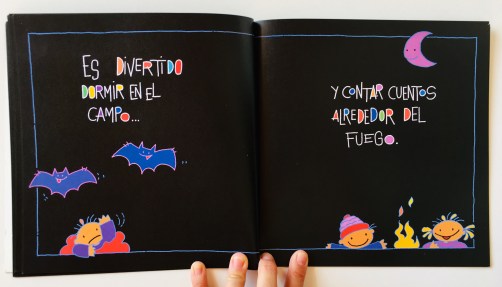 ES DIVERTIDO
DORMIR EN EL
CAMPO...
Y CONTAR CUENTOS
ALREDEDOR DEL
FUEGO.